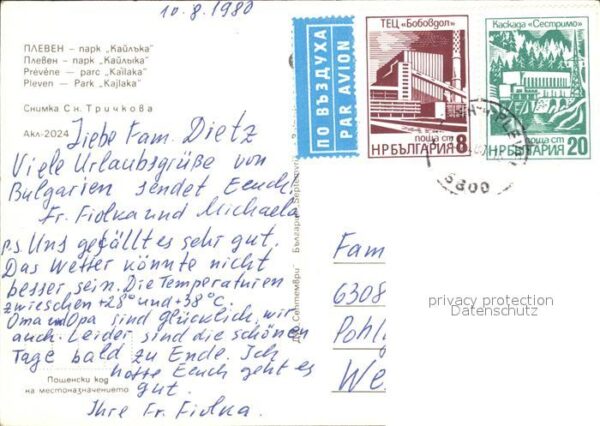 10.8.1980
ПЛЕВЕН — парк „Кайлъка"
Плевен — парк „Кайлыка"
Prévène — parc „Kaïlaka"
Pleven — Park „Kajlaka"
Снимка Сн. Тричкова
Акл-2024
Liebe Fam. Dietz
Viele Urlaubsgrüße von
Bulgarien sendet Eeuch!
Fr. Fiolka und Michaela
P.S Uns gefällt es sehr gut.
Das Wetter könnte nicht
besser sein. Die Temperaturen
zwieschen +28° und +38°C.
Oma und Opa sind glücklich, wir
auch. Leider sind die schönen
Tage bald zu Ende. Ich
hoffe Eeuch geht es
gut.
Ihre Fr. Fiolka.
Пощенски код
на местоназначението
ДП „Септември
България
Septemvri
ПО ВЪЗДУХА
PAR AVION
ТЕЦ „Бобовдол"
поща ст
НР БЪЛГАРИЯ 8
Каскада „Сестримо"
поща ст
НР БЪЛГАРИЯ 20
5800
Fam
6308
Pohl
We
privacy protection
Datenschutz